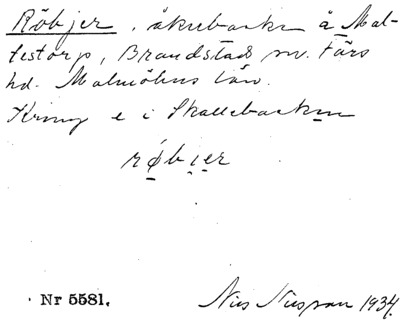 Röbjer, åkerbacke å Mal-
testorp, Brandstads sn. Färs
hd. Malmöhus län.
Kring e i Skallebacken
røbjer
Nr 5581.
Nils Nilsson 1934.